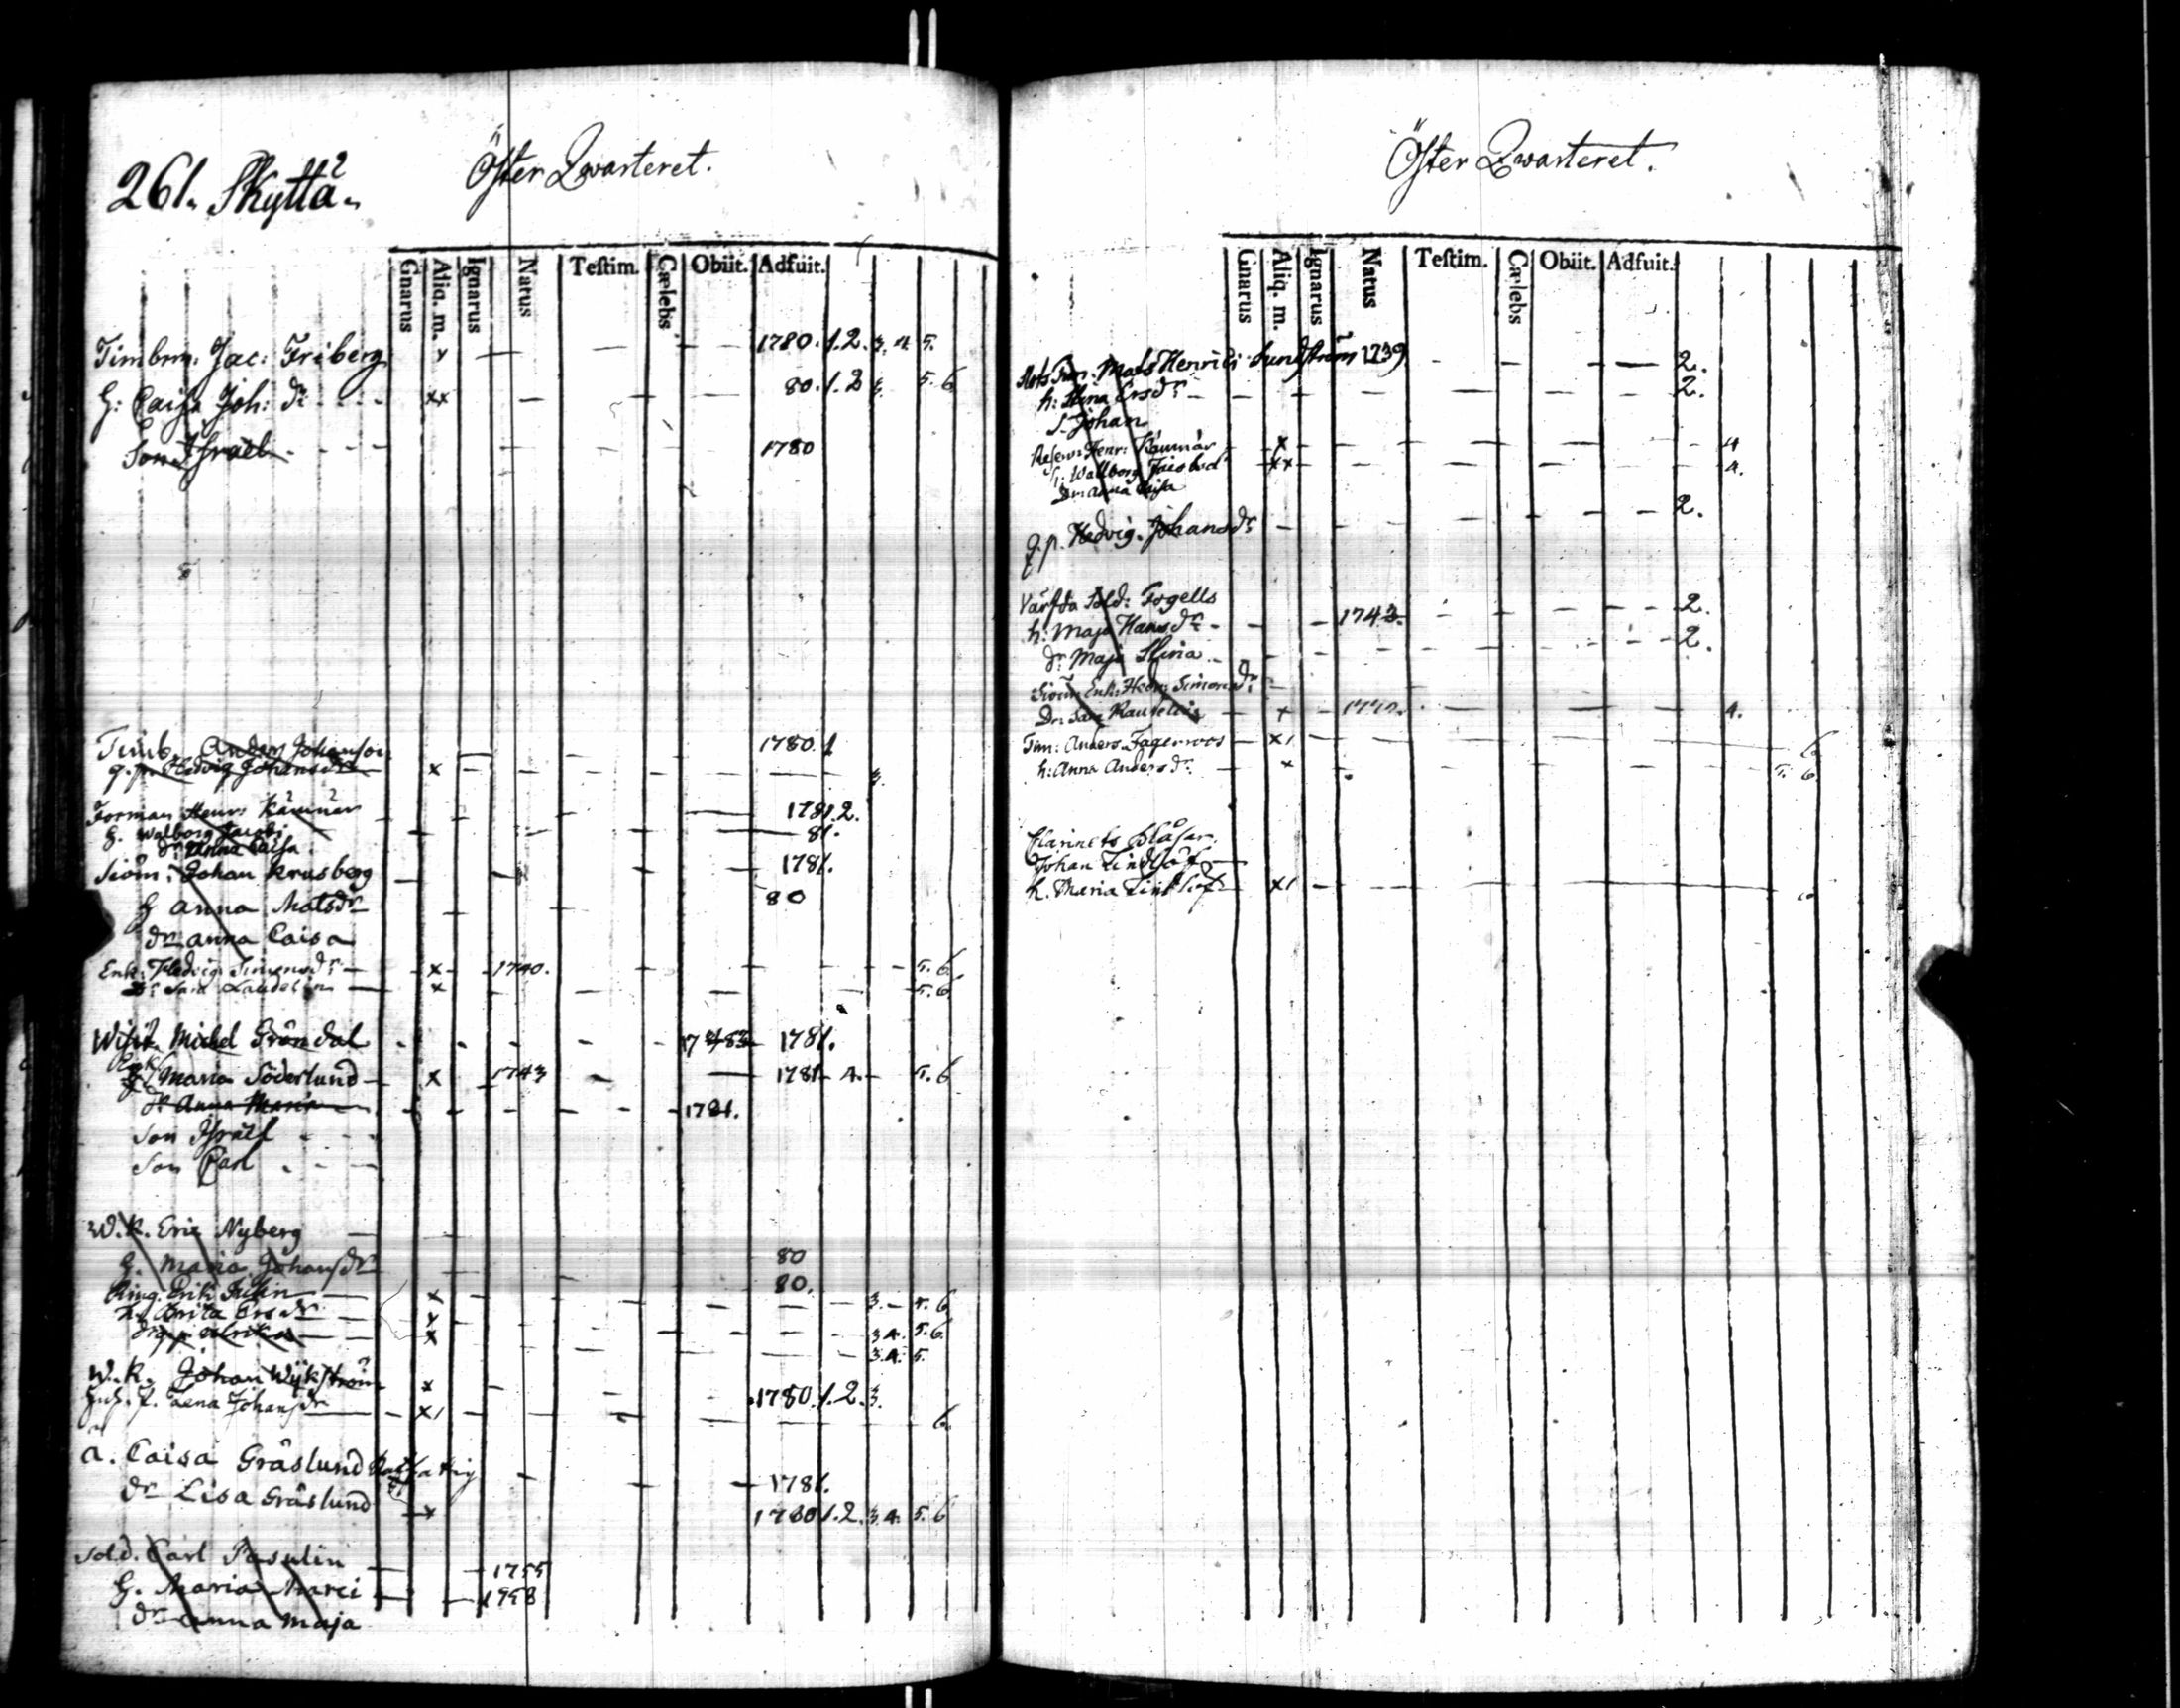 261. Skyttä.
Öster Qwarteret.
Gnarus Aliq. m. Ignarus Natus Testim. Cælebs Obiit. Adfuit.
Timbrm: Jac: Friberg x 1780. 1. 2. 3. 4. 5.
H: Caisa Joh: dr xx 80. 1. 2 3. 5. 6
Son Israel 1780
Timb. Anders Johanson 1780. 1
q.p. Hedvig Johansdr x 3.
Forman Henr: Kämnär 1781. 2.
H. Walborg Jacobi 81.
dr Anna Caisa
Siöm: Johan Krusberg 1781.
H Anna Matsdr 80
dr Anna Caisa
Enk: Hedvig Simonsdr x 1740. 5. 6
Dr Sara x 5. 6
Michel Gröndal 1781.
Maria Söderlund x 1743 1781 4. 5. 6
dr Anna Maria 1781.
Son Israel
Son Carl
W.K. Eric Nyberg
H. Maria Johansdr 80
80.
Erik x 3. 5. 6
h. Brita Ersdr x 3 4. 5. 6
Ulrika x 3. 4. 5.
W.K. Johan Wijkström x 1780. 1. 2. 3.
Johansdr x 6
a. Caisa Gräslund 1781.
dr Lisa Gräslund x 1780 1. 2. 3. 4. 5. 6
Sold. Carl 1755
H. Maria 1758
dr Anna Maja
Öster Qwarteret.
Gnarus Aliq. m. Ignarus Natus Testim. Cælebs Obiit. Adfuit.
Mats Henrici Sundström 1739 2.
h: Stina Ersdr 2.
S. Johan
Henr: Kämnär x 4
h: Wallborg Jacobsd xx 4.
Dr Anna Caisa
q.p. Hedvig Johansdr 2.
Värfda Sold: Fogells
h: Maja Hansdr 1743. 2.
dr Maja Stina 2.
Enk: Hedv: Simonsdr
Dr: Sara x 4.
Tim: Anders Fagerroos x 6
h: Anna Andersdr x 5. 6.
Clarinets blåsar.
Johan Lindlöf
h. Maria Lindlöf x